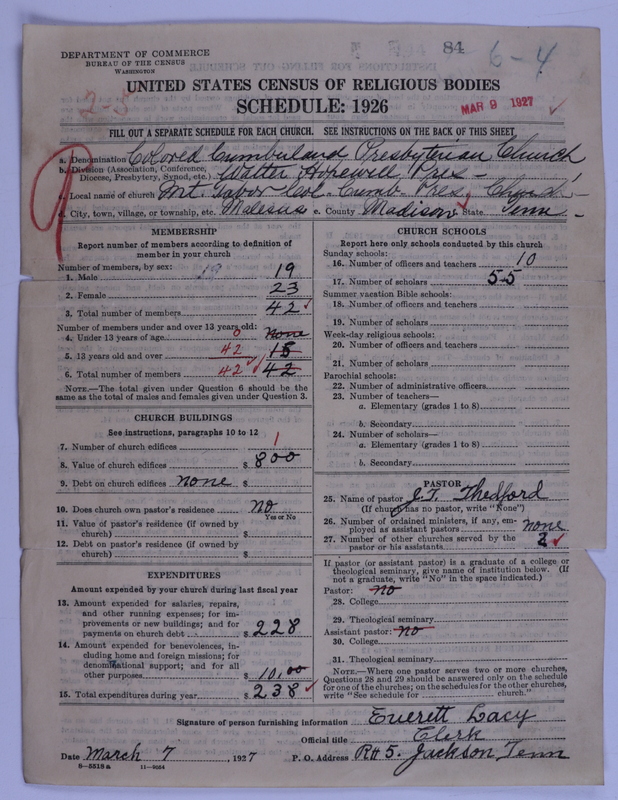 84
6-4
DEPARTMENT OF COMMERCE
BUREAU OF THE CENSUS
WASHINGTON
UNITED STATES CENSUS OF RELIGIOUS BODIES
2-5
SCHEDULE: 1926
MAR 9 1927
FILL OUT A SEPARATE SCHEDULE FOR EACH CHURCH. SEE INSTRUCTIONS ON THE BACK OF THIS SHEET
a. Denomination Colored Cumberland Presbyterian Church
b. Division (Association, Conference, Diocese, Presbytery, Synod, etc.) Walter Hopewell Pres-
c. Local name of church Mt. Tabor Col. Cumb. Pres. Church
d. City, town, village, or township, etc. Malesus e. County Madison State Tenn-
MEMBERSHIP
Report number of members according to definition of
member in your church
Number of members, by sex:
1. Male 19 19
2. Female 23
3. Total number of members 42
Number of members under and over 13 years old:
4. Under 13 years of age 0 none
5. 13 years old and over 42 15
6. Total number of members 42 42
NOTE.—The total given under Question 6 should be the
same as the total of males and females given under Question 3.
CHURCH BUILDINGS
See instructions, paragraphs 10 to 12
7. Number of church edifices 1
8. Value of church edifices $ 800
9. Debt on church edifices none $
10. Does church own pastor's residence no
Yes or No
11. Value of pastor's residence (if owned by
church) $
12. Debt on pastor's residence (if owned by
church) $
EXPENDITURES
Amount expended by your church during last fiscal year
13. Amount expended for salaries, repairs,
and other running expenses; for im-
provements or new buildings; and for
payments on church debt $ 228
14. Amount expended for benevolences, in-
cluding home and foreign missions; for
denominational support; and for all
other purposes $ 10.00
15. Total expenditures during year $ 238
CHURCH SCHOOLS
Report here only schools conducted by this church
Sunday schools:
16. Number of officers and teachers 10
17. Number of scholars 55
Summer vacation Bible schools:
18. Number of officers and teachers
19. Number of scholars
Week-day religious schools:
20. Number of officers and teachers
21. Number of scholars
Parochial schools:
22. Number of administrative officers
23. Number of teachers—
a. Elementary (grades 1 to 8)
b. Secondary
24. Number of scholars—
a. Elementary (grades 1 to 8)
b. Secondary
PASTOR
25. Name of pastor J.T. Thedford
(If church has no pastor, write "None")
26. Number of ordained ministers, if any, em-
ployed as assistant pastors none
27. Number of other churches served by the
pastor or his assistants 2
If pastor (or assistant pastor) is a graduate of a college or
theological seminary, give name of institution below. (If
not a graduate, write "No" in the space indicated.)
Pastor: no
28. College
29. Theological seminary
Assistant pastor: no
30. College
31. Theological seminary
NOTE.—Where one pastor serves two or more churches,
Questions 28 and 29 should be answered only on the schedule
for one of the churches; on the schedules for the other churches,
write "See schedule for church."
Signature of person furnishing information Everett Lacy
Official title Clerk
Date March 7, 1927 P. O. Address R#5. Jackson Tenn
8-5518a 11-9054